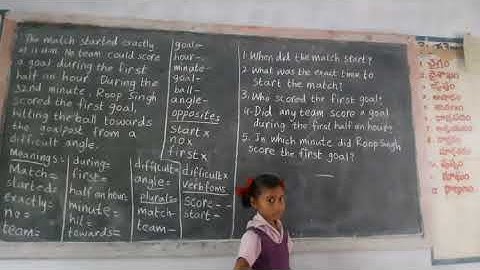 The match started exactly
at 11 A.M. No team could score
a goal during the first
half an hour. During the
32nd minute, Roop Singh
scored the first goal,
hitting the ball towards
the goalpost from a
difficult angle.
Meanings:-
Match=
started=
exactly=
no=
team=
during=
first=
half an hour=
minute=
hit=
towards=
difficult=
angle=
plurals=
match-
team-
goal-
hour-
minute-
goal-
ball-
angle-
opposites
start x
no x
first x
difficult x
Verb forms
score- -
start- -
1. When did the match start?
2. What was the exact time to
start the match?
3. Who scored the first goal?
4. Did any team score a goal
during the first half an hour?
5. In which minute did Roop Singh
score the first goal?
చైత్రం
వైశాఖం
జ్యేష్ఠం
ఆషాఢం